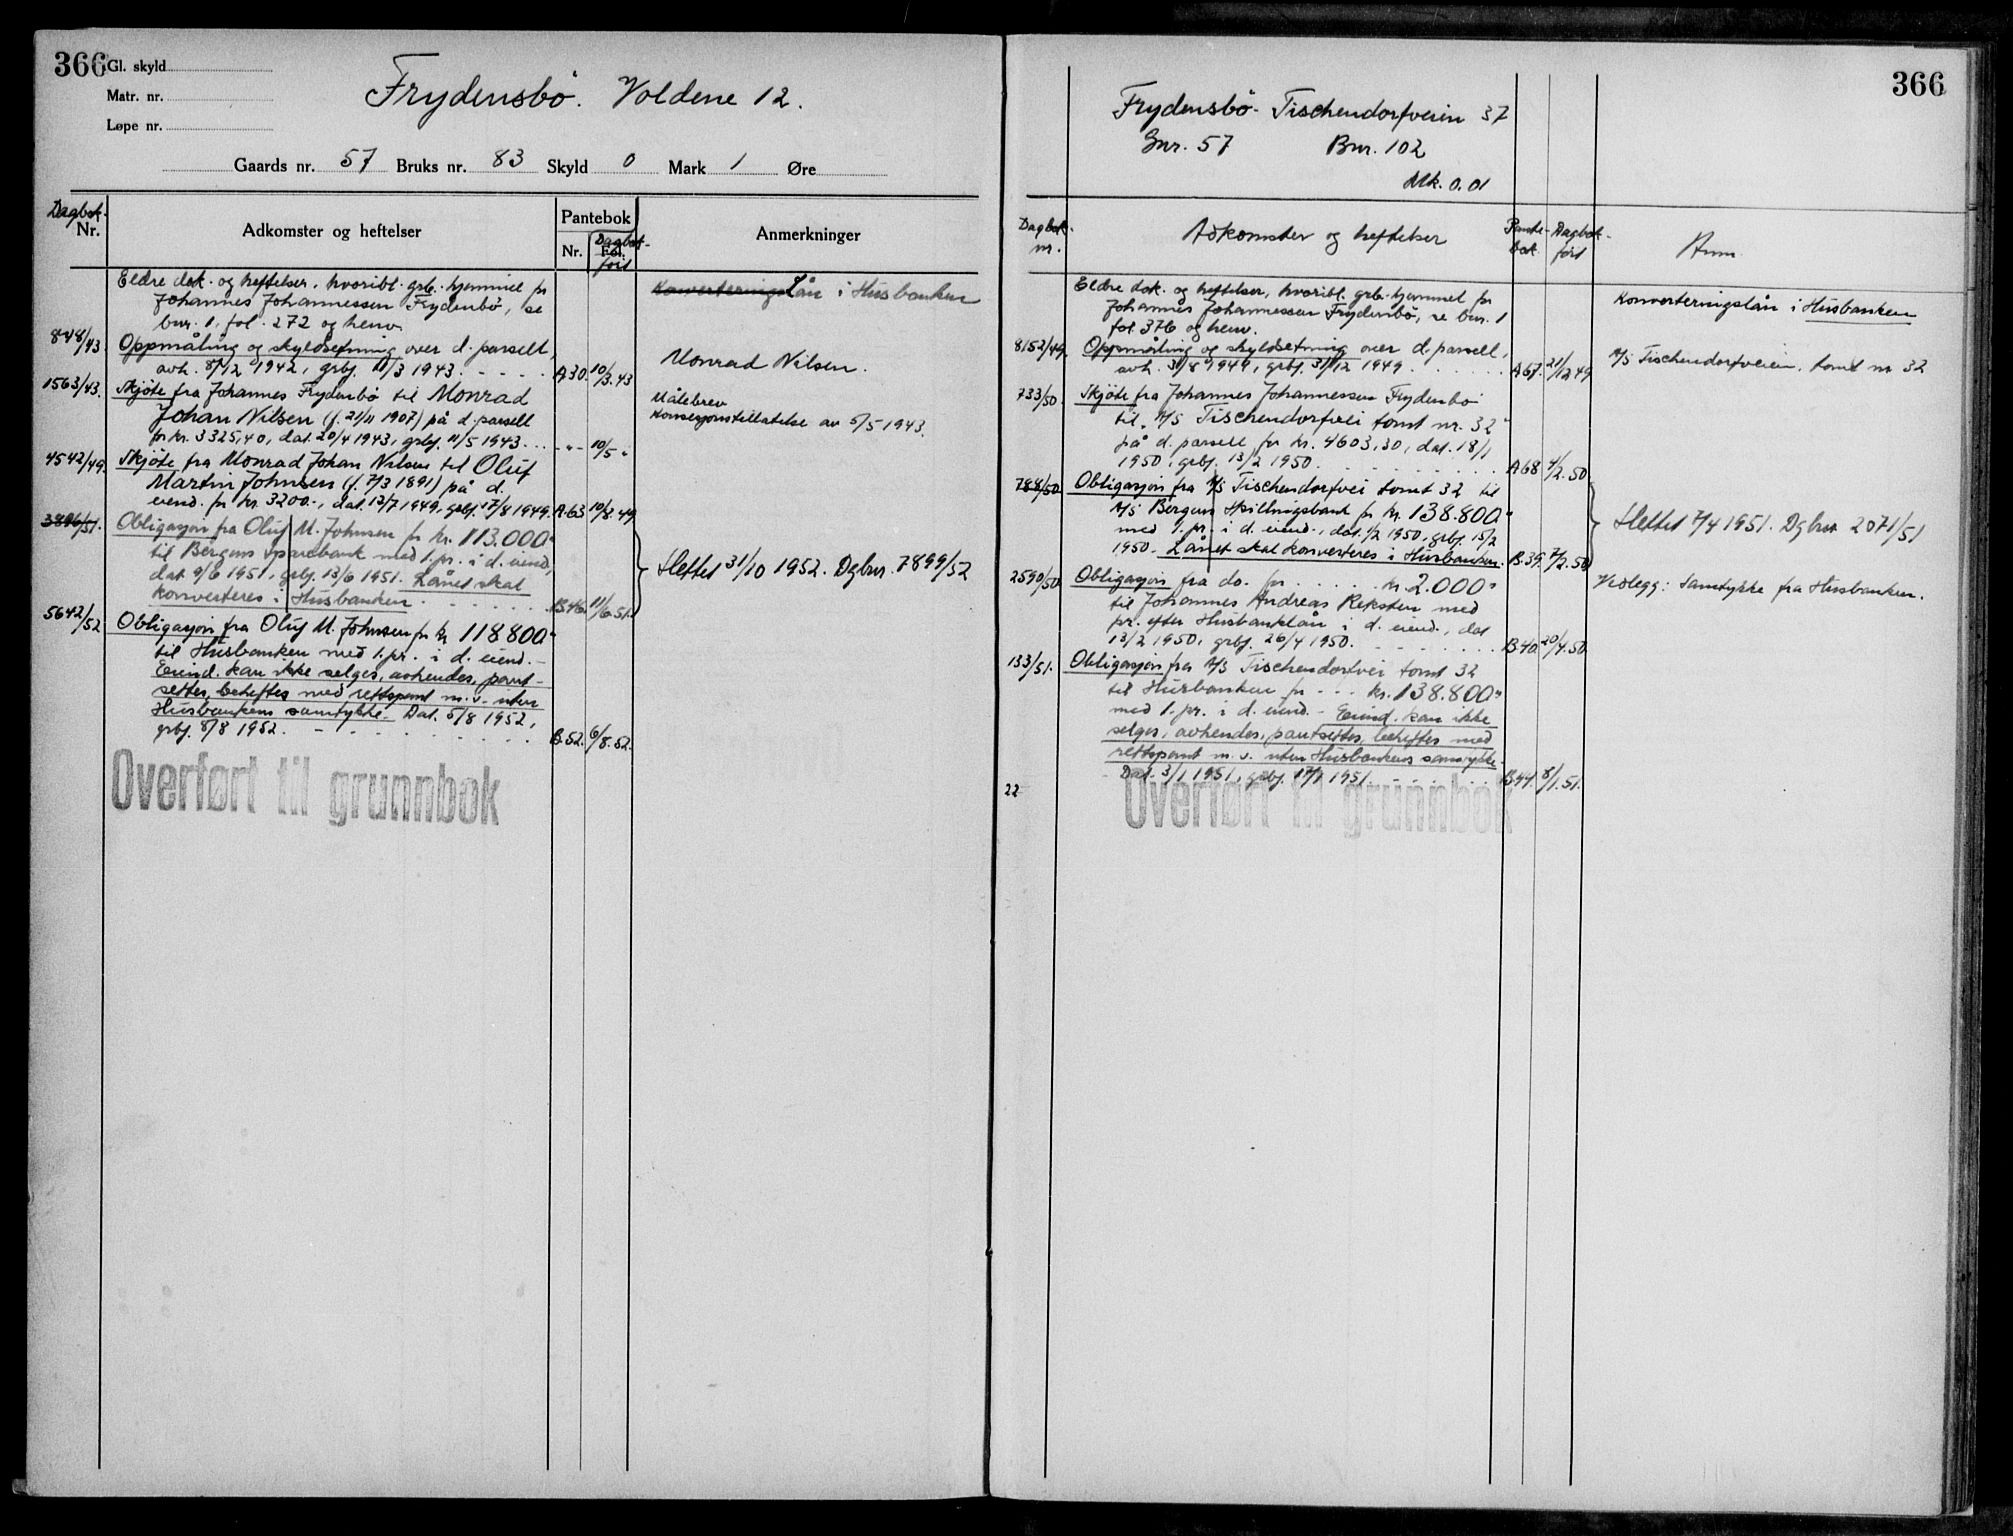 366
Gl. skyld
Matr. nr.
Løpe nr.
Frydensbö. Voldene 12.
Gaards nr. 57 Bruks nr. 83 Skyld 0 Mark 1 Øre
Dagbok-
Nr.
Adkomster og heftelser
Pantebok
Nr.
Dagbok-
Fol.
ført
Anmerkninger
Eldre dok. og heftelser, hvoribl. grb. hjemmel for
Johannes Johannessen Frydenbö, se
bnr. 1. fol. 272 og henv.
Konverterings Lån i Husbanken
848/43. Oppmåling og skyldsetning over d. parsell,
avh. 8/12 1942, grbf. 11/3 1943. A30. 10/3.43
Monrad Nilsen.
1563/43. Skjöte fra Johannes Frydenbö til Monrad
Johan Nilsen (f. 21/11 1907) på d. parsell
for kr. 3325,40, dat. 20/4 1943, grbf. 11/5 1943. -"- 10/5 "
Målebrev
Konsesjonstillatelse av 5/5 1943.
4542/49. Skjöte fra Monrad Johan Nilsen til Oluf
Martin Johnsen (f. 7/3 1891) på d.
eiend. for kr. 3200.-, dat. 12/7 1949, grbf. 17/8 1949. A.63 10/8.49
3896/51. Obligasjon fra Oluf M. Johnsen for kr. 113.000"
til Bergens Sparebank med 1. pr. i d. eiend,
dat. 9/6 1951, grbf. 13/6 1951. Lånet skal
konverteres i Husbanken B.46. 11/6.51.
Slettet 31/10 1952. Dgbnr. 7899/52
5642/52 Obligasjon fra Oluf M. Johnsen for kr 118800"
til Husbanken med 1. pr. i d. eiend.-
Eiend. kan ikke selges, avhendes, pant-
settes, beheftes med rettspant m.v. uten
Husbankens samtykke. Dat. 5/8 1952,
grbf. 8/8 1952. B.52. 6/8.52.
Overført til grunnbok
366
Frydensbö- Tischendorfveien 37
Gnr. 57 Bnr. 102
Mk. 0.01
Dagbok-
nr.
Adkomster og heftelser
Pante-
bok
Dagbok-
ført
Anm.
Eldre dok. og heftelser, hvoribl. grb. hjemmel for
Johannes Johannessen Frydenbö, se bnr. 1
fol 376 og henv.
Konverteringslån i Husbanken
8152/49. Oppmåling og skyldsetning over d. parsell,
avh. 31/8 1949, grbf. 31/12 1949. A67. 21/12 49
A/S Tischendorfveien, tomt nr 32
733/50. Skjöte fra Johannes Johannessen Frydenbö
til "A/S Tischendorfvei tomt nr. 32"
på d. parsell for kr. 4603,30, dat. 18/1
1950, grbf. 13/2 1950. A68 4/2.50
788/50 Obligasjon fra A/S Tischendorfvei tomt 32 til
A/S Bergens Skillingsbank for kr. 138.800"
med 1. pr. i d. eiend., dat. 1/2 1950, grbf. 15/2
1950. Lånet skal konverteres i Husbanken. B.39. 7/2.50
Slettet 7/4 1951. Dgbnr 2071/51
2590/50. Obligasjon fra do. for kr. 2.000"
til Johannes Andreas Reksten med
pr. efter Husbanklån i d. eiend., dat
13/2 1950, grbf. 26/4 1950. B.40. 20/4.50.
Vedlegg: Samtykke fra Husbanken.
133/51. Obligasjon fra A/S Tischendorfvei tomt 32
til Husbanken for kr. 138.800"
med 1. pr. i d. eiend. - Eiend. kan ikke
selges, avhendes, pantsettes, beheftes med
rettspant m.v. uten Husbankens samtykke.
Dat. 3/1 1951, grbf. 17/1 1951. B.44. 8/1.51.
22
Overført til grunnbok